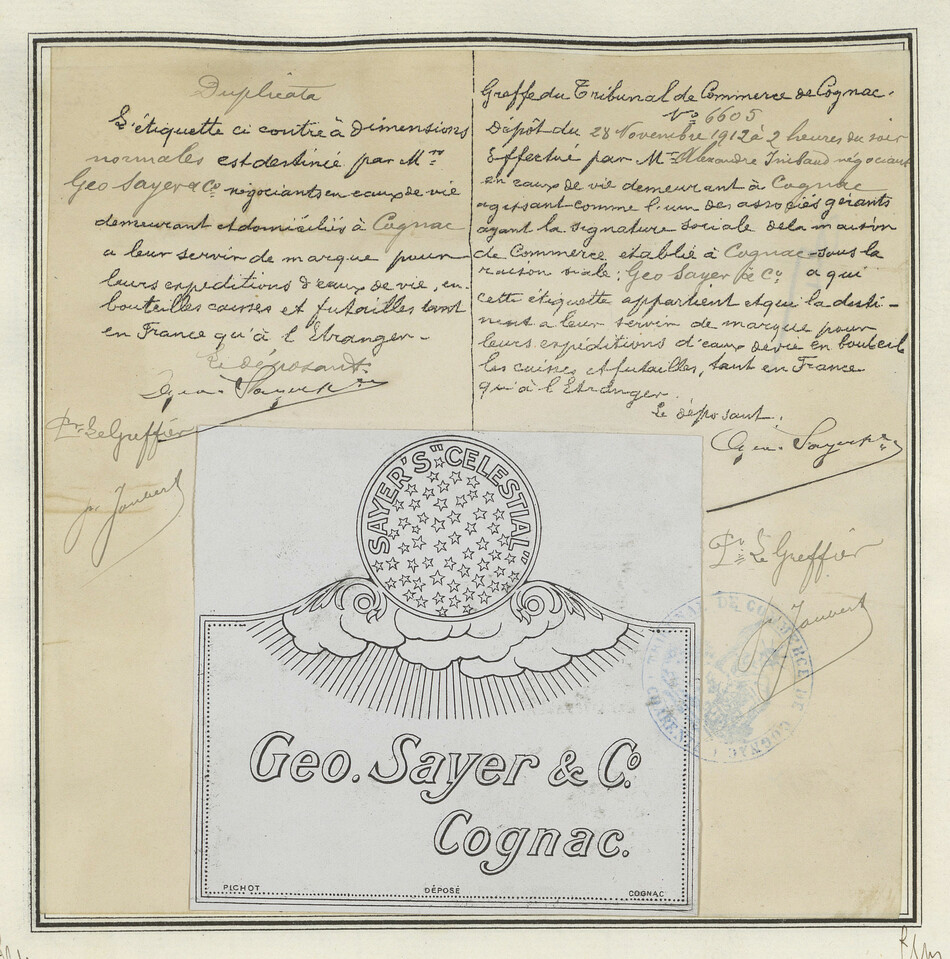 Duplicata
L'étiquette ci contre à dimensions
normales est destinée par Mrs
Geo Sayer & Co négociants en eaux de vie
demeurant et domiciliés à Cognac
a leur servir de marque pour
leurs expéditions d'eaux de vie, en
bouteilles caisses et futailles tant
en France qu'à l'Etranger.
Le déposant
Geo. Sayer & Co
Pr Le Greffier
Greffe du Tribunal de Commerce de Cognac.
No 6605
Dépôt du 28 Novembre 1912 à 2 heures du soir
Effectué par Mr Alexandre Tribaud négociant
en eaux de vie demeurant à Cognac
agissant comme l'un des associés gérants
ayant la signature sociale de la maison
de Commerce établie à Cognac sous la
raison siale: Geo Sayer & Co. a qui
cette étiquette appartient et qui la desti-
nent a leur servir de marque pour
leurs expéditions d'eaux de vie en bouteil
les caisses et futailles, tant en France
qu'à l'Etranger.
Le déposant.
Geo. Sayer & Co
Pr Le Greffier
SAYER'S "CELESTIAL"
Geo. Sayer & Co.
Cognac.
PICHOT DÉPOSÉ COGNAC
TRIBUNAL DE COMMERCE DE COGNAC